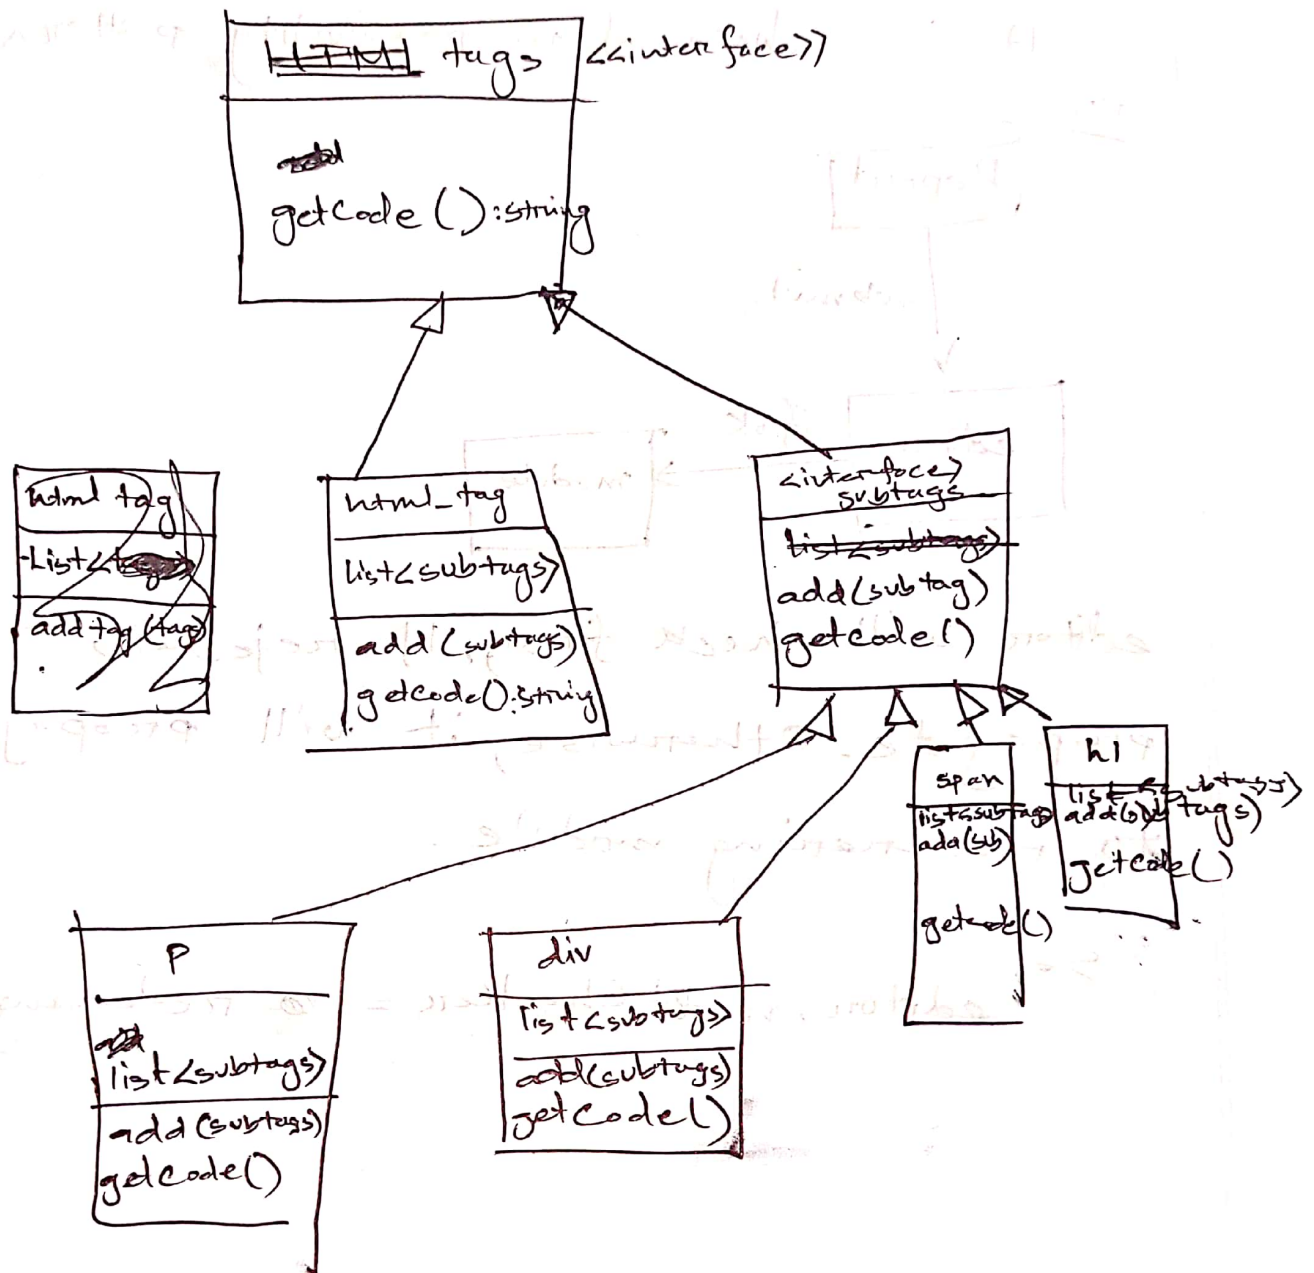 HTML tags <<interface>>
getCode():string
html tag
-List<
add tag (tags)
html_tag
list<subtags>
add (subtags)
getcode():string
<interface>
subtags
list<subtags>
add(subtag)
getcode()
span
list<subtags
add(sub)
getcode()
h1
list<subtags>
add(subtags)
getCode()
P
list<subtags>
add (subtags)
getcode()
div
list<subtags>
add(subtags)
getCode()